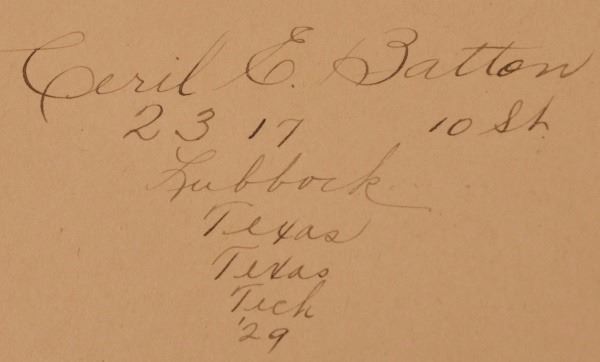 Ceril E. Batton
2317 10 St.
Lubbock
Texas
Texas
Tech
'29